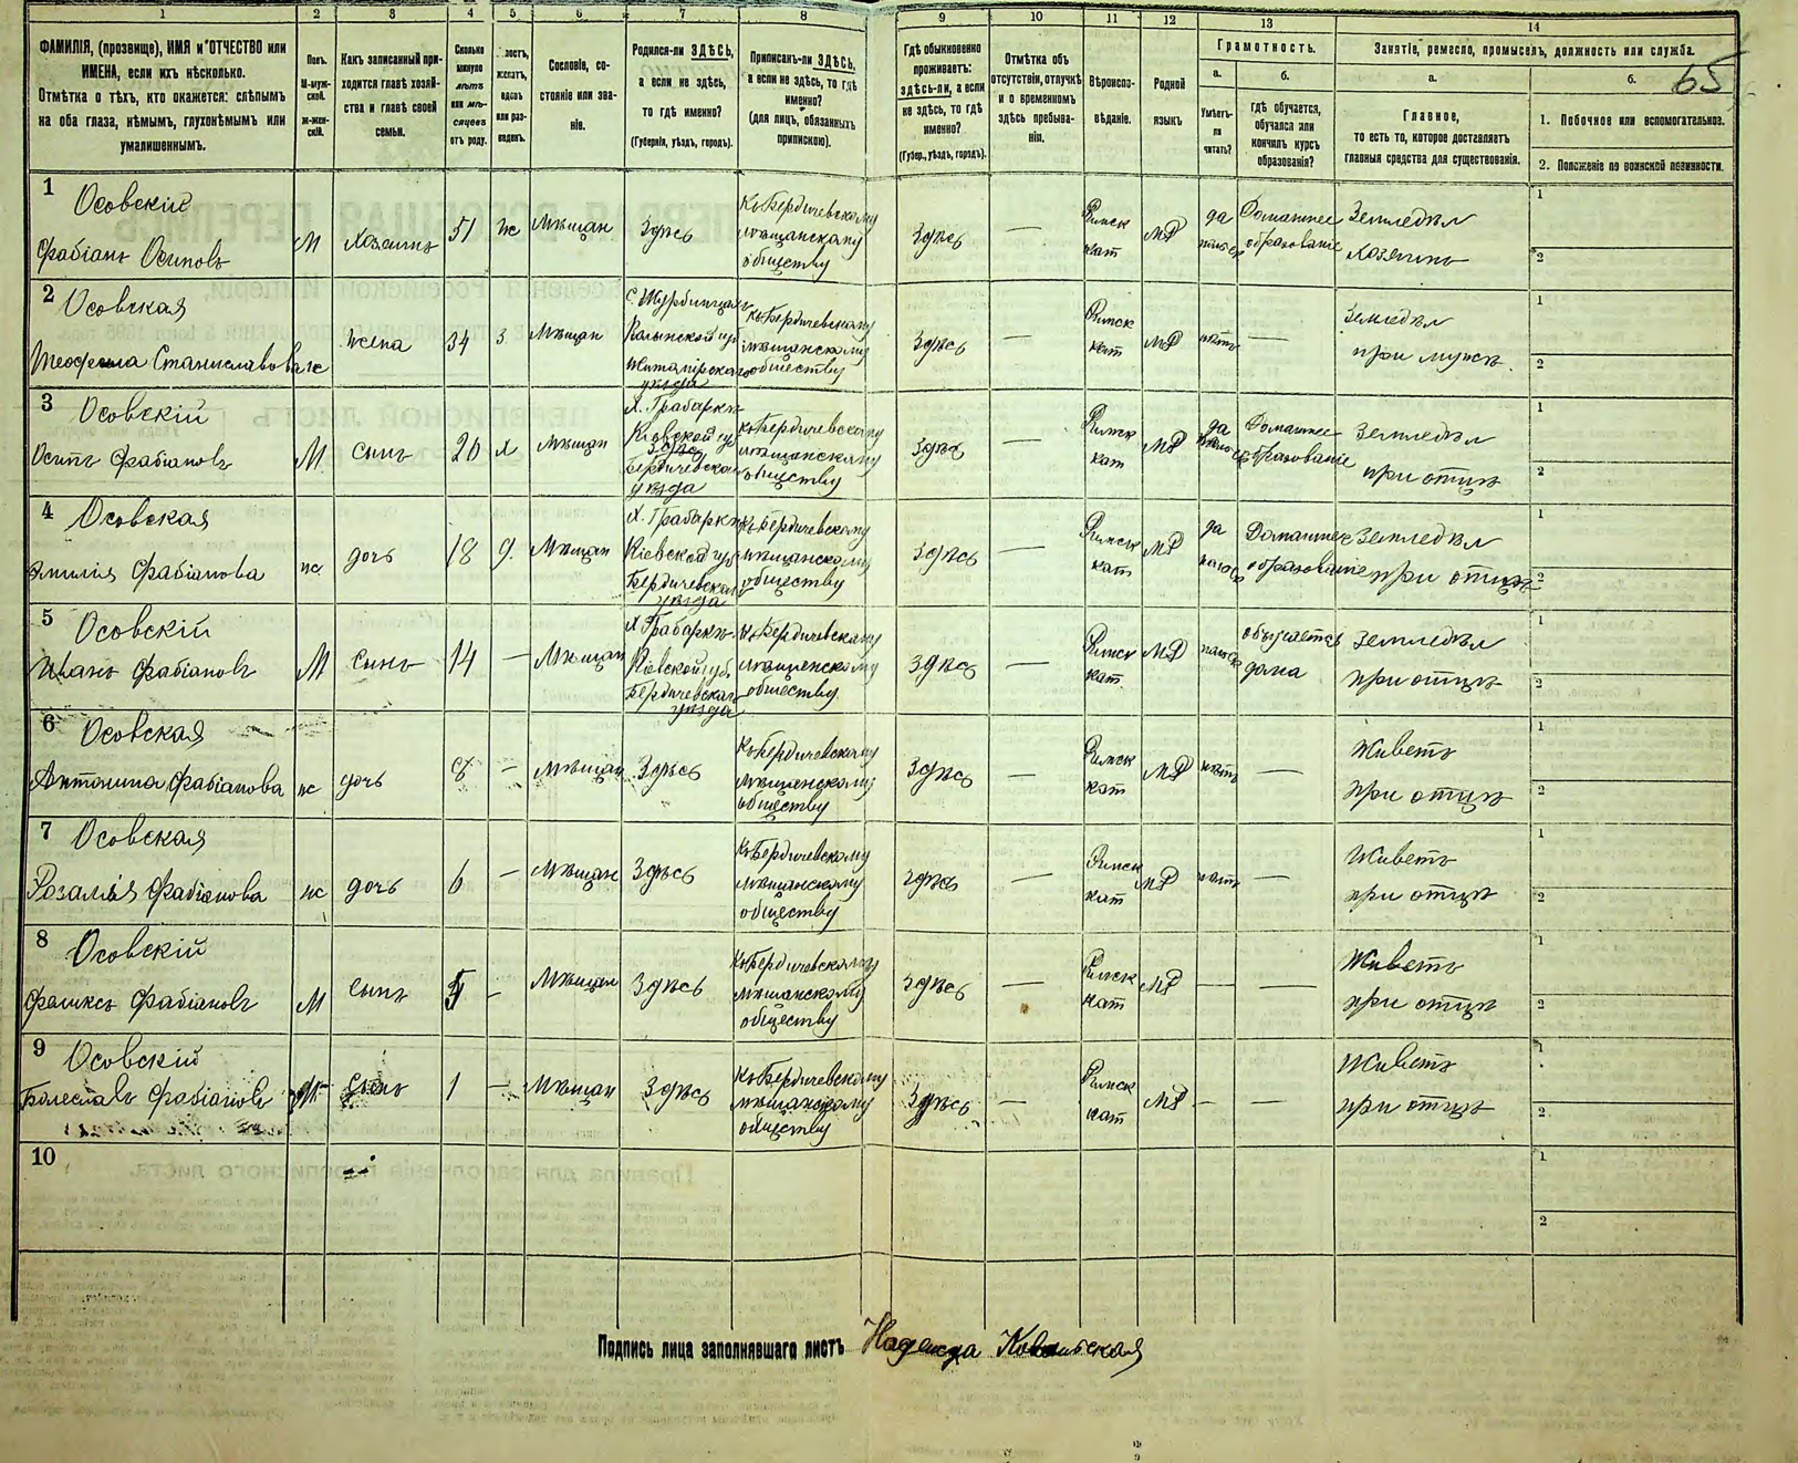 1 2 3 4 5 6 7 8 9 10 11 12 13 14
65
ФАМИЛІЯ, (прозвище), ИМЯ и ОТЧЕСТВО или
ИМЕНА, если ихъ нѣсколько.
Отмѣтка о тѣхъ, кто окажется: слѣпымъ
на оба глаза, нѣмымъ, глухонѣмымъ или
умалишеннымъ.
Полъ.
М-муж-
ской.
Ж-жен-
скій.
Какъ записанный при-
ходится главѣ хозяй-
ства и главѣ своей
семьи.
Сколько
минуло
лѣтъ
или мѣ-
сяцевъ
отъ роду.
лостъ,
женатъ,
вдовъ
или раз-
веденъ.
Сословіе, со-
стояніе или зва-
ніе.
Родился-ли ЗДѢСЬ,
а если не здѣсь,
то гдѣ именно?
(Губернія, уѣздъ, городъ).
Приписанъ-ли ЗДѢСЬ,
а если не здѣсь, то гдѣ
именно?
(для лицъ, обязанныхъ
припискою).
Гдѣ обыкновенно
проживаетъ:
здѣсь-ли, а если
не здѣсь, то гдѣ
именно?
(Губер., уѣздъ, городъ).
Отмѣтка объ
отсутствіи, отлучкѣ
и о временномъ
здѣсь пребыва-
ніи.
Вѣроиспо-
вѣданіе.
Родной
языкъ
Грамотность.
а.
Умѣетъ-
ли
читать?
б.
гдѣ обучается,
обучался или
кончилъ курсъ
образованія?
Занятіе, ремесло, промыселъ, должность или служба.
а.
Главное,
то есть то, которое доставляетъ
главныя средства для существованія.
б.
1. Побочное или вспомогательное.
2. Положеніе по воинской повинности.
1 Осовскій
Фабіанъ Осиповъ М Хозяинъ 51 ж Мѣщан Здѣсь
Къ Бердичевскому
мѣщанскому
обществу
Здѣсь — Римск
кат МР да
Домашнее
образованіе
Земледѣл
Хозяинъ
1
2
2 Осовская
Теофила Станиславова ж жена 34 з Мѣщан
Волынской губ
уѣзда
Къ Бердичевскому
мѣщанскому
обществу
Здѣсь — Римск
кат МР нѣтъ —
Земледѣл
при мужѣ
1
2
3 Осовскій
Осипъ Фабіановъ М сынъ 20 х Мѣщан
Х. Грабарка
Кіевской губ
Бердичевскаго
уѣзда
Къ Бердичевскому
мѣщанскому
обществу
Здѣсь — Римск
кат МР да
Домашнее
образованіе
Земледѣл
при отцѣ
1
2
4 Осовская
Эмилія Фабіанова ж дочь 18 д. Мѣщан
Х. Грабарка
Кіевской губ
Бердичевскаго
уѣзда
Къ Бердичевскому
мѣщанскому
обществу
Здѣсь — Римск
кат МР да
Домашнее
образованіе
Земледѣл
при отцѣ
1
2
5 Осовскій
Иванъ Фабіановъ М сынъ 14 — Мѣщан
Х Грабарка
Кіевской губ.
Бердичевскаго
уѣзда
Къ Бердичевскому
мѣщанскому
обществу
Здѣсь — Римск
кат. МР
обучается
дома
Земледѣл
при отцѣ
1
2
6 Осовская
Антонина Фабіанова ж дочь 8 — Мѣщан Здѣсь
Къ Бердичевскому
мѣщанскому
обществу
Здѣсь — Римск
кат МР нѣтъ —
Живетъ
при отцѣ
1
2
7 Осовская
Розалія Фабіанова ж дочь 6 — Мѣщан Здѣсь
Къ Бердичевскому
мѣщанскому
обществу
Здѣсь — Римск
кат МР нѣтъ —
Живетъ
при отцѣ
1
2
8 Осовскій
Феликсъ Фабіановъ М сынъ – Мѣщан Здѣсь
Къ Бердичевскому
мѣщанскому
обществу
Здѣсь — Римск
кат МР — —
Живетъ
при отцѣ
1
2
9 Осовскій
Болеславъ Фабіановъ сынъ 1 — Мѣщан Здѣсь
Къ Бердичевскому
мѣщанскому
обществу
Здѣсь — Римск
кат МР – —
Живетъ
при отцѣ
1
2
10
1
2
Подпись лица заполнявшаго листъ Надежда